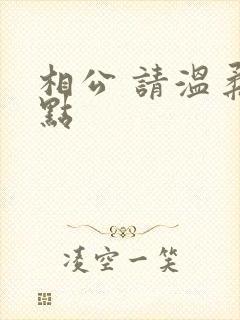 相公 請溫柔
點
凌空一笑